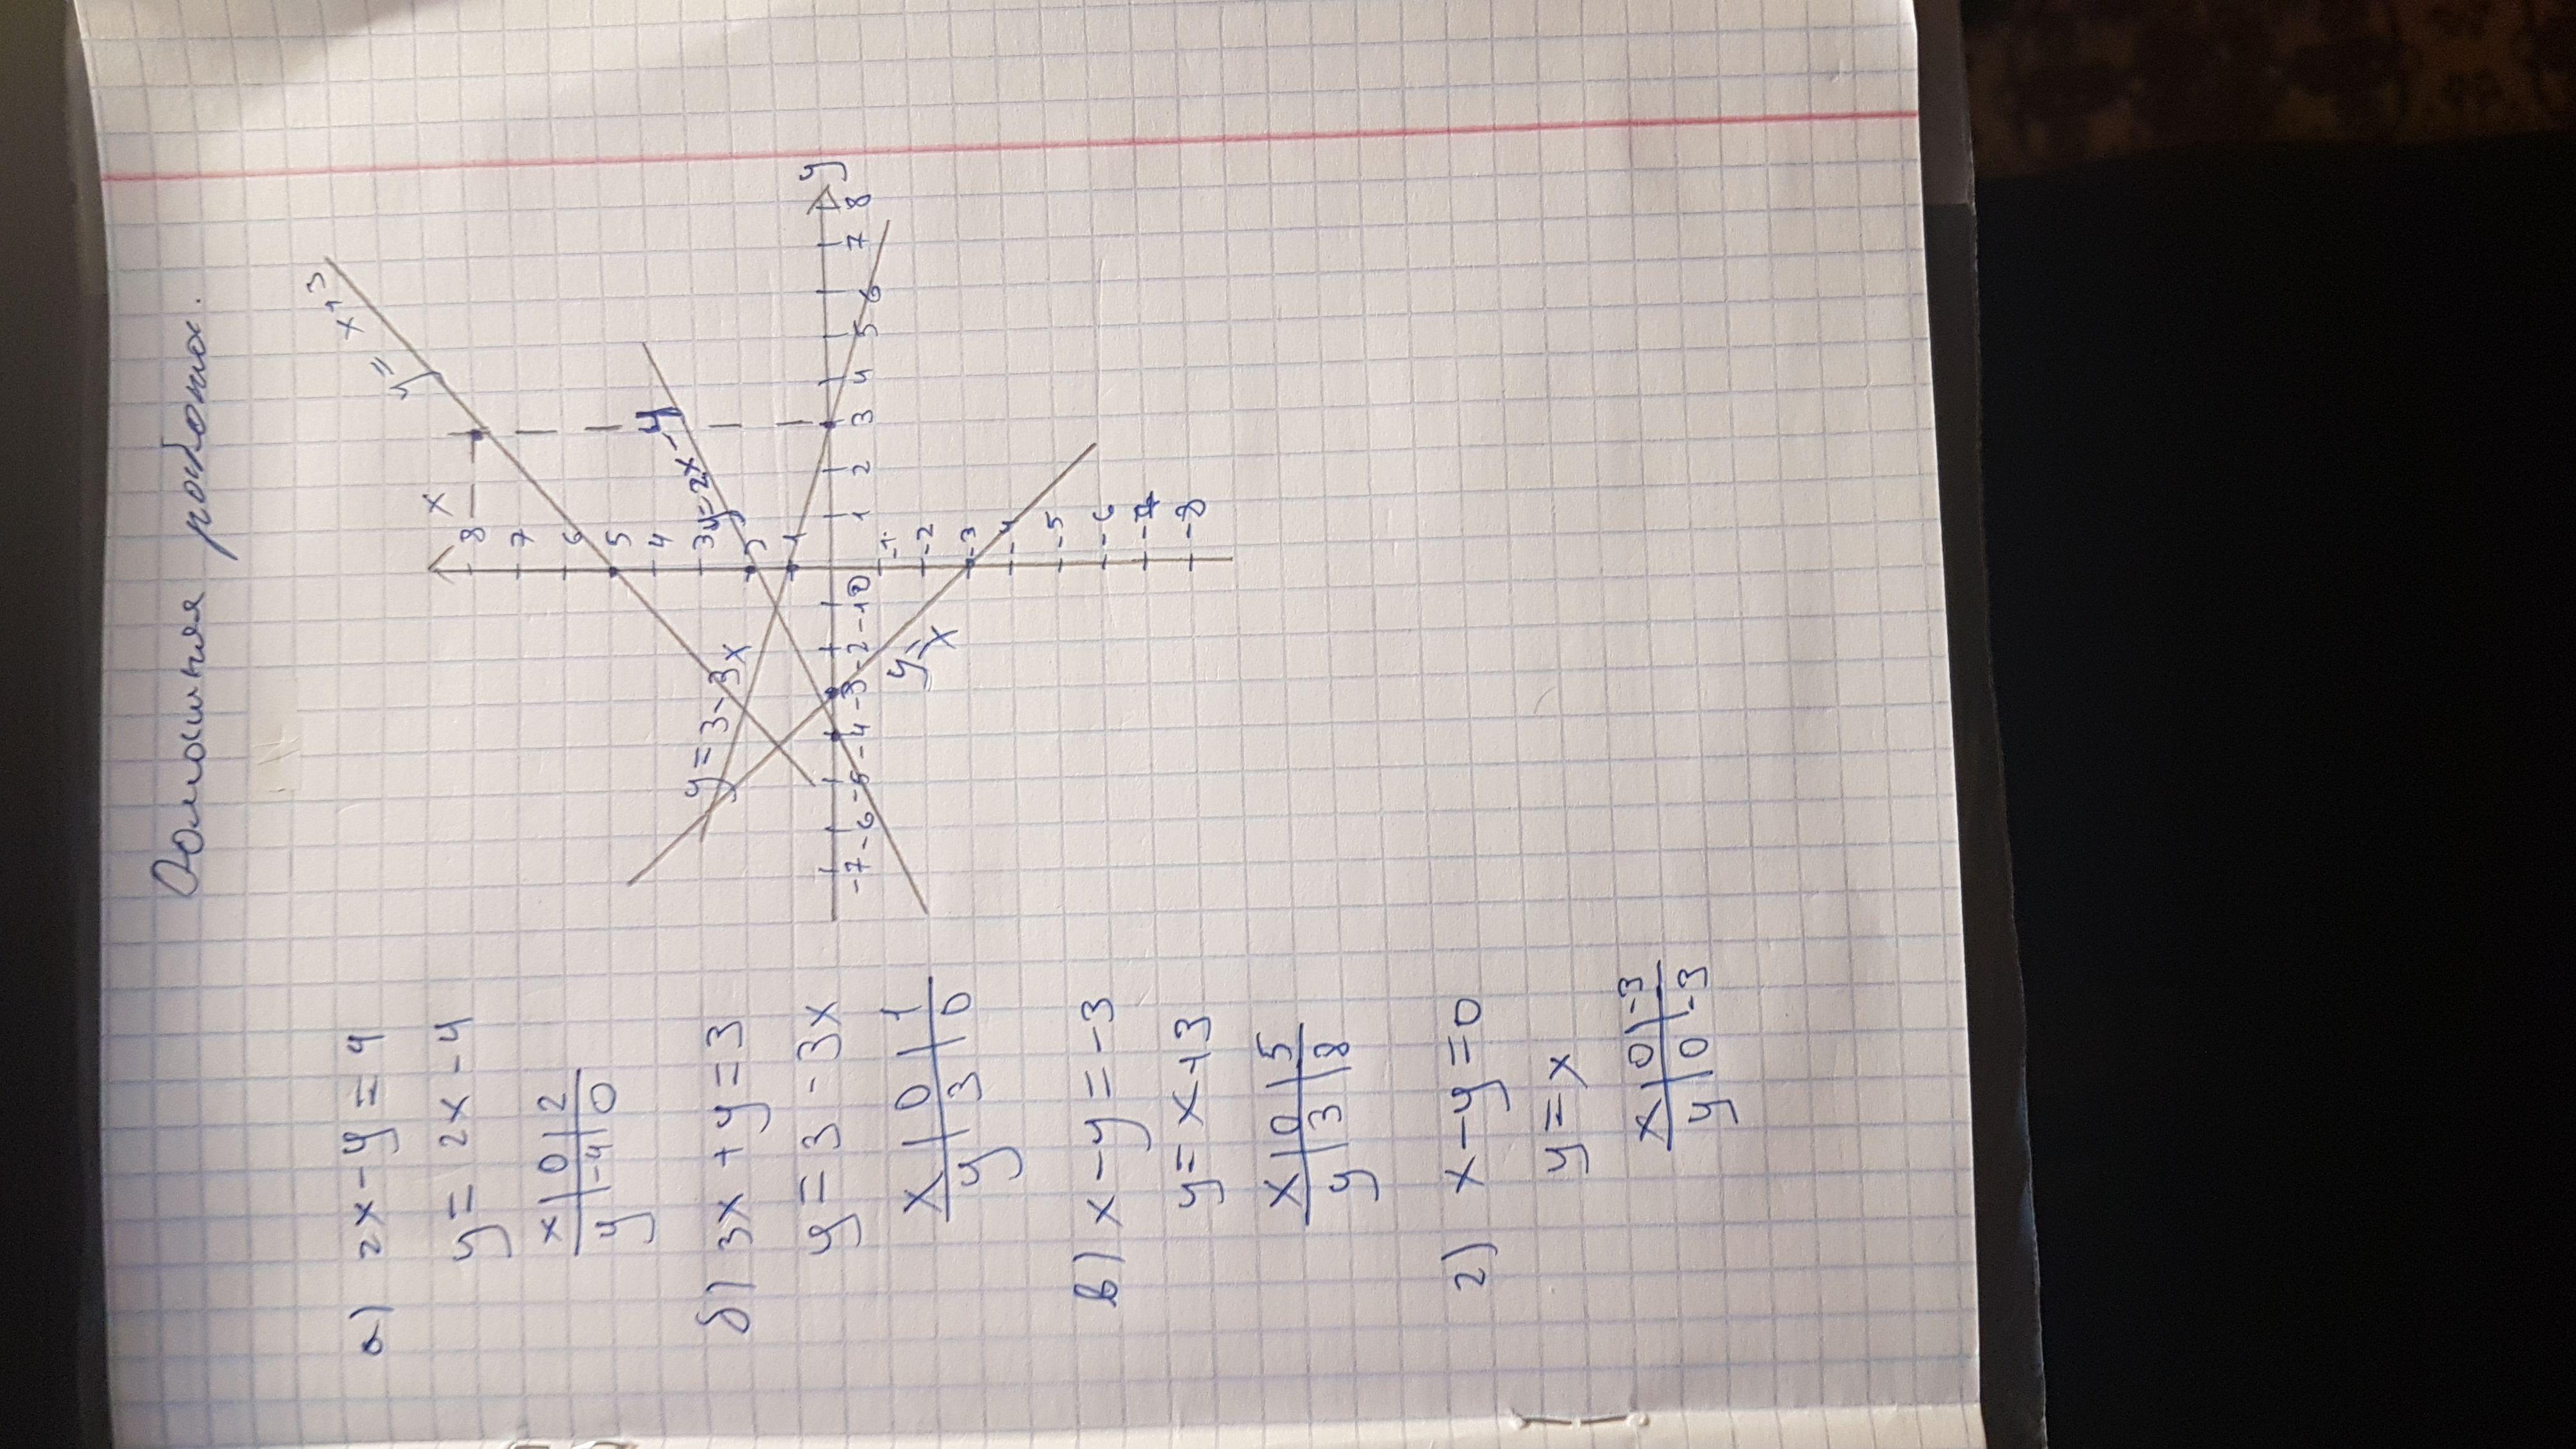 Домашняя работа.
а) 2x - y = 4
y = 2x - 4
x | 0 | 2
y | -4 | 0
б) 3x + y = 3
y = 3 - 3x
x | 0 | 1
y | 3 | 0
в) x - y = -3
y = x + 3
x | 0 | 5
y | 3 | 8
г) x - y = 0
y = x
x | 0 | -3
y | 0 | -3
y = x+3
x
8 7 6 5 4 3 2 1
-1 -2 -3 -4 -5 -6 -7 -8
y=2x-4
y = 3-3x
y=x
-7 -6 -5 -4 -3 -2 -1 0 1 2 3 4 5 6 7 8
y